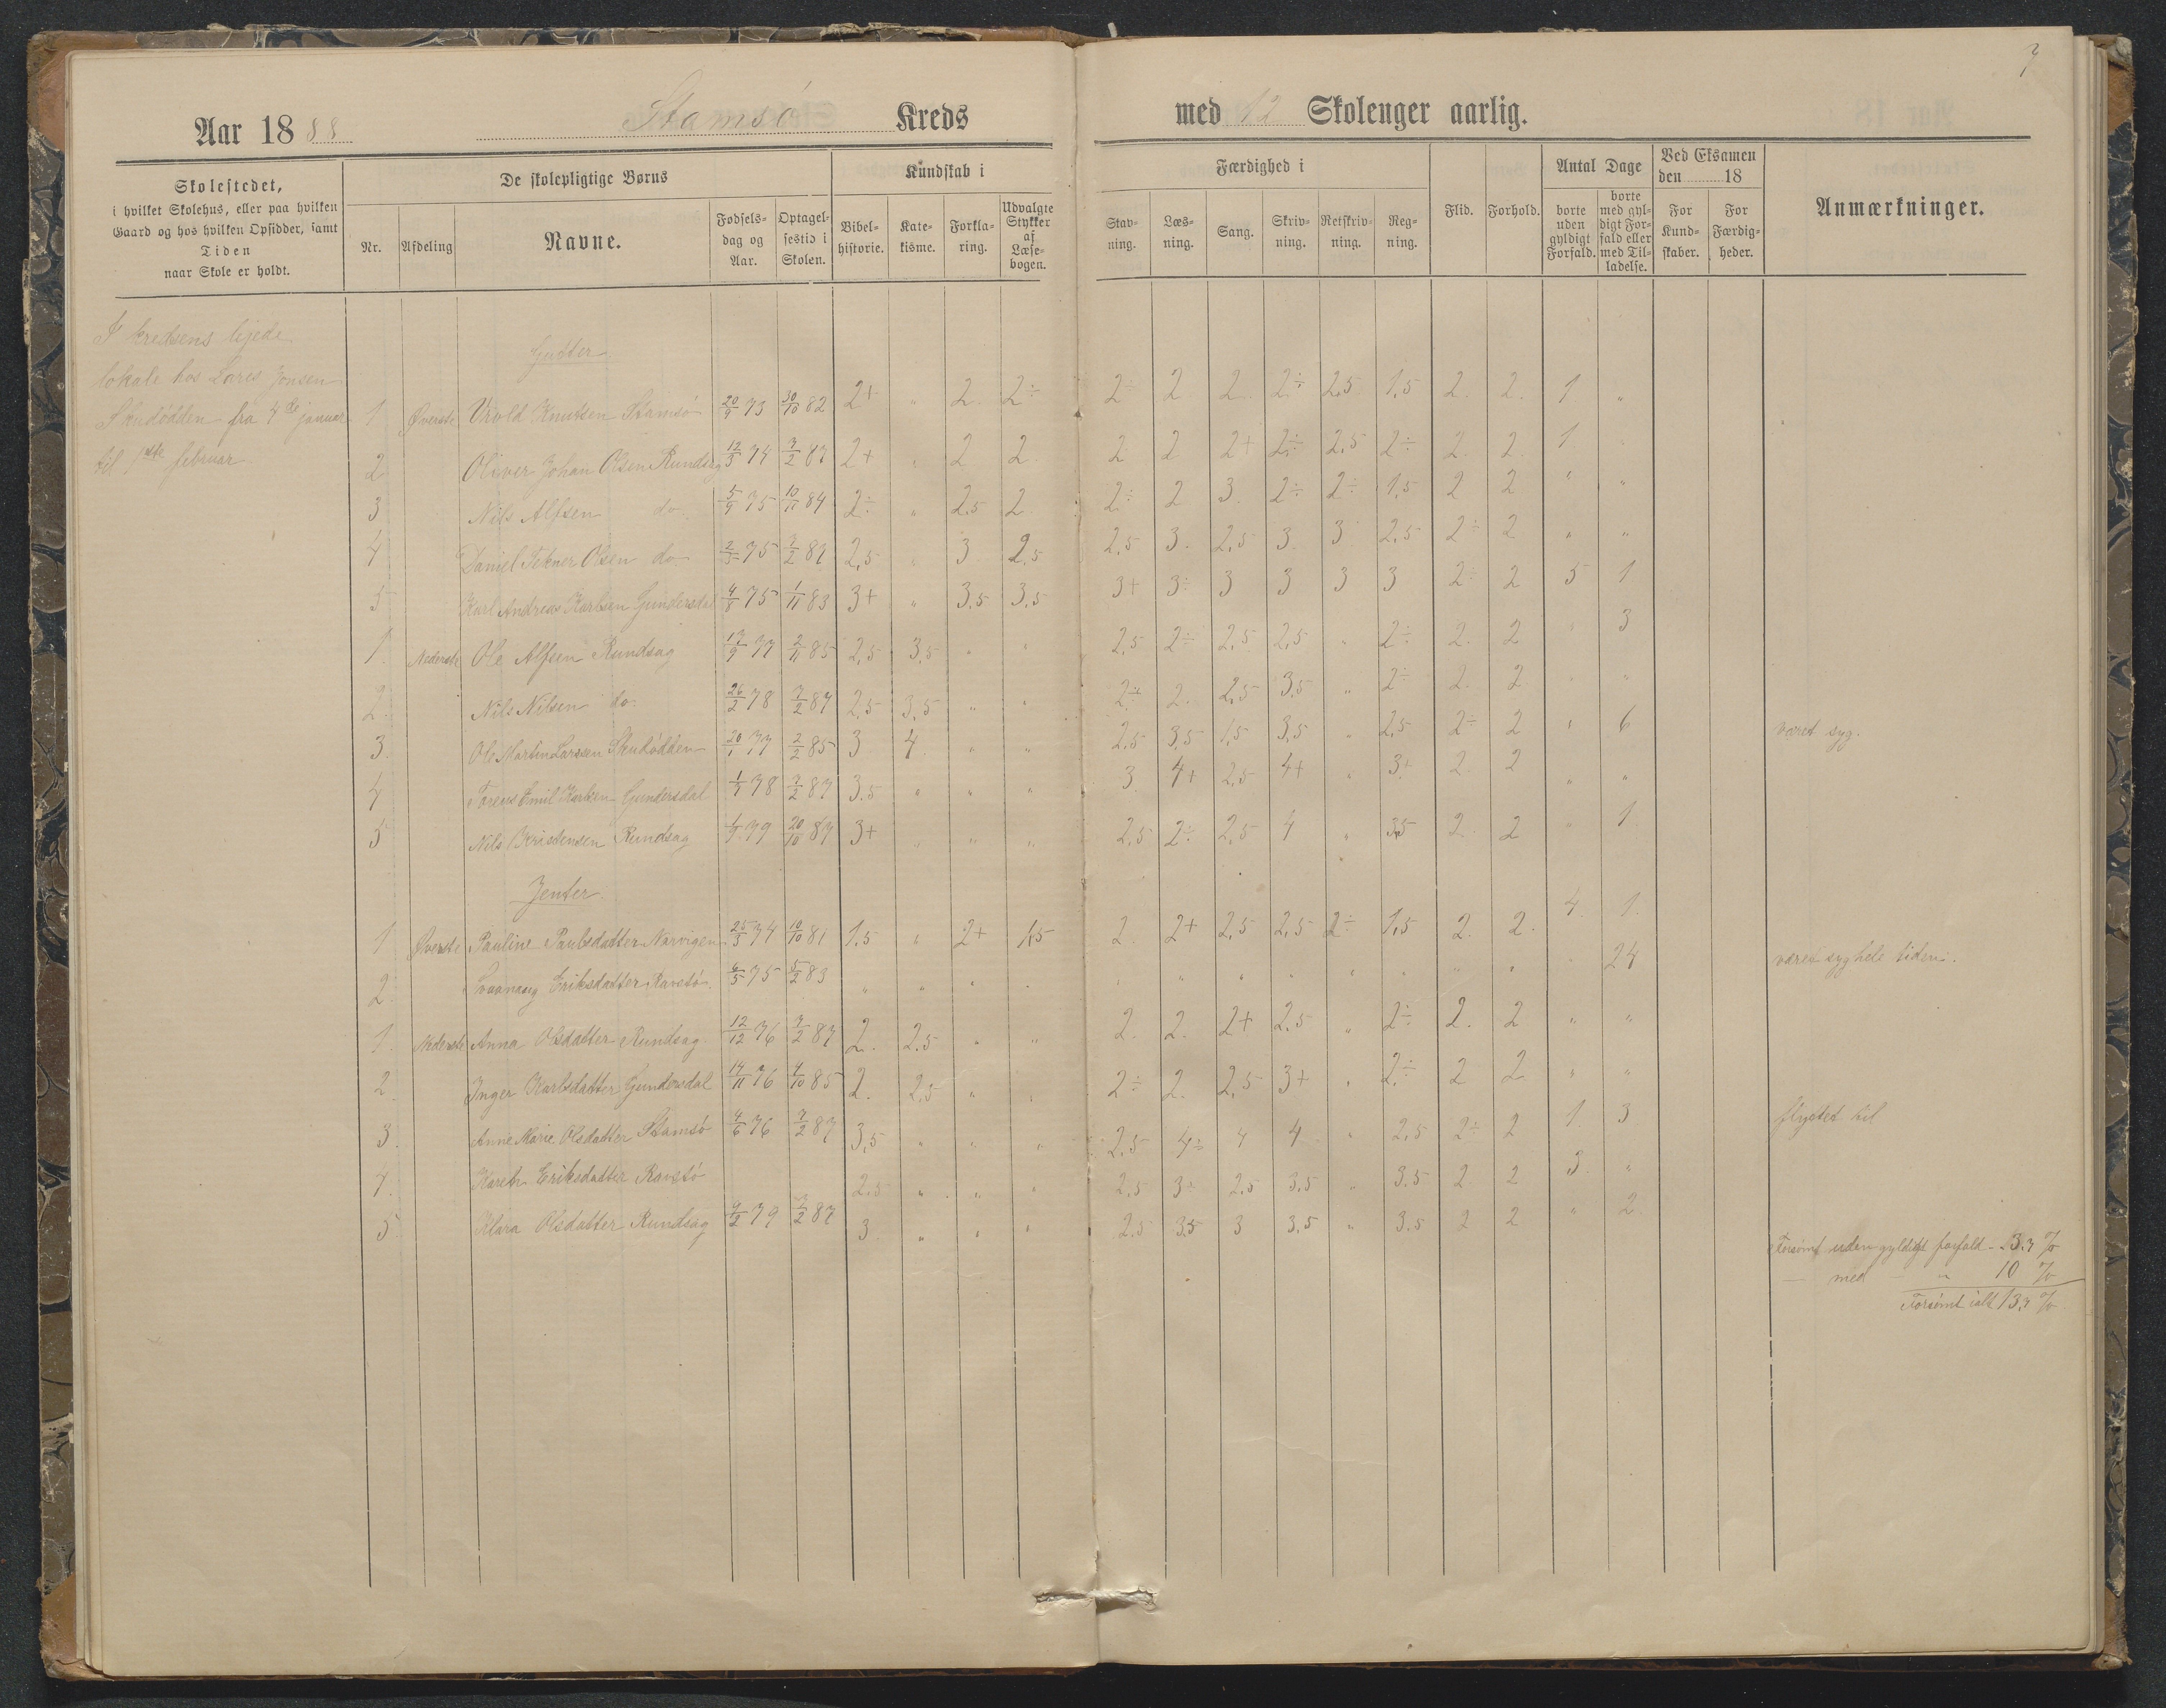 7
Aar 1888 Stamsø Kreds med 12 Skolenger aarlig.
Skolestedet, i hvilket Skolehus, eller paa hvilken Gaard og hos hvilken Opsidder, samt Tiden naar Skole er holdt.
De skolepligtige Børns
Nr. Afdeling Navne. Fødselsdag og Aar. Optagelsestid i Skolen.
Kundskab i
Bibelhistorie. Katekisme. Forklaring. Udvalgte Stykker af Læsebogen.
Færdighed i
Stavning. Læsning. Sang. Skrivning. Retskrivning. Regning.
Flid. Forhold.
Antal Dage
borte uden gyldigt Forfald. borte med gyldigt Forfald eller med Tilladelse.
Ved Eksamen den 18
For Kundskaber. For Færdigheder.
Anmærkninger.
I kredsens lejede
lokale hos Lares Jonsen
Skudødden fra 4de januar
til 1ste februar
Gutter
1 Øverste Knutsen Stamsø 20/9 73 30/10 82 2+ " 2 2÷ 2÷ 2 2 2÷ 2,5 1,5 2 2 1 "
2 Oliver Johan Olsen Rundsag 12/3 74 7/2 87 2+ " 2 2 2 2 2+ 2÷ 2,5 2÷ 2 2 1
3 Nils Alfsen do 5/9 75 10/11 84 2÷ " 2,5 2 2÷ 2 3 2÷ 2÷ 1,5 2 2 " "
4 Daniel Olsen do 75 7/2 87 2,5 " 3 2,5 2,5 3 2,5 3 3 2,5 2÷ 2 " "
5 Karl Andreas Karlsen Gundersdal 4/8 75 1/11 83 3+ " 3,5 3,5 3+ 3÷ 3 3 3 3 2÷ 2 5 1
1. Nederste Ole Alfsen Rundsag 17/9 77 2/11 85 2,5 3,5 " " 2,5 2÷ 2,5 2,5 " 2÷ 2 2 " 3
2. Nils Nilsen do 26/2 78 7/2 87 2,5 3,5 " " 2÷ 2 2,5 3,5 " 2÷ 2 2 " "
3. Ole Martin Larssen Skudødden 20/1 77 2/2 85 3 4 " " 2,5 3,5 1,5 3,5 " 2,5 2÷ 2 " 6 været syg.
4 Emil Karlsen Gundersdal 78 7/2 87 3,5 " " " 3 4+ 2,5 4+ " 3+ 2 2 " "
5 Nils Kristensen Rundsag 79 20/10 87 3+ " " " 2,5 2÷ 2,5 4 " 3,5 2 2 " 1
Jenter.
1 Øverste Pauline Paulsdatter Narvigen 25/3 74 10/10 81 1,5 " 2+ 1,5 2 2+ 2,5 2,5 2÷ 1,5 2 2 4 1
2. Eriksdatter Ravstø 75 5/2 83 " " " " " " " " " " " " 24 været syg hele tiden.
1. Nederste Anna Olsdatter Rundsag 12/12 76 7/2 87 2. 2,5 " " 2. 2. 2+ 2,5 " 2÷ 2. 2 " "
2. Inger Karlsdatter Gundersdal 14/11 76 4/10 85 2. 2,5 " " 2÷ 2. 2,5 3+ " 2÷ 2 2 " "
3. Anne Marie Olsdatter Stamsø 4/6 76 7/2 87 3,5 " " " 2,5 4÷ 4 4 " 2,5 2÷ 2 1 3 flyttet til
4. Karen Eriksdatter Ravstø 2,5 " " " 2,5 3÷ 2,5 3,5 " 3.5 2 2 3 "
5 Klara Olsdatter Rundsag 4/2 79 7/2 87 3. " " " 2.5 3,5 3 3,5 " 3.5 2 2 " 2
Forsømt uden gyldigt forfald - 3.7 %
— med — " 10 %
Forsømt ialt 13,7 %